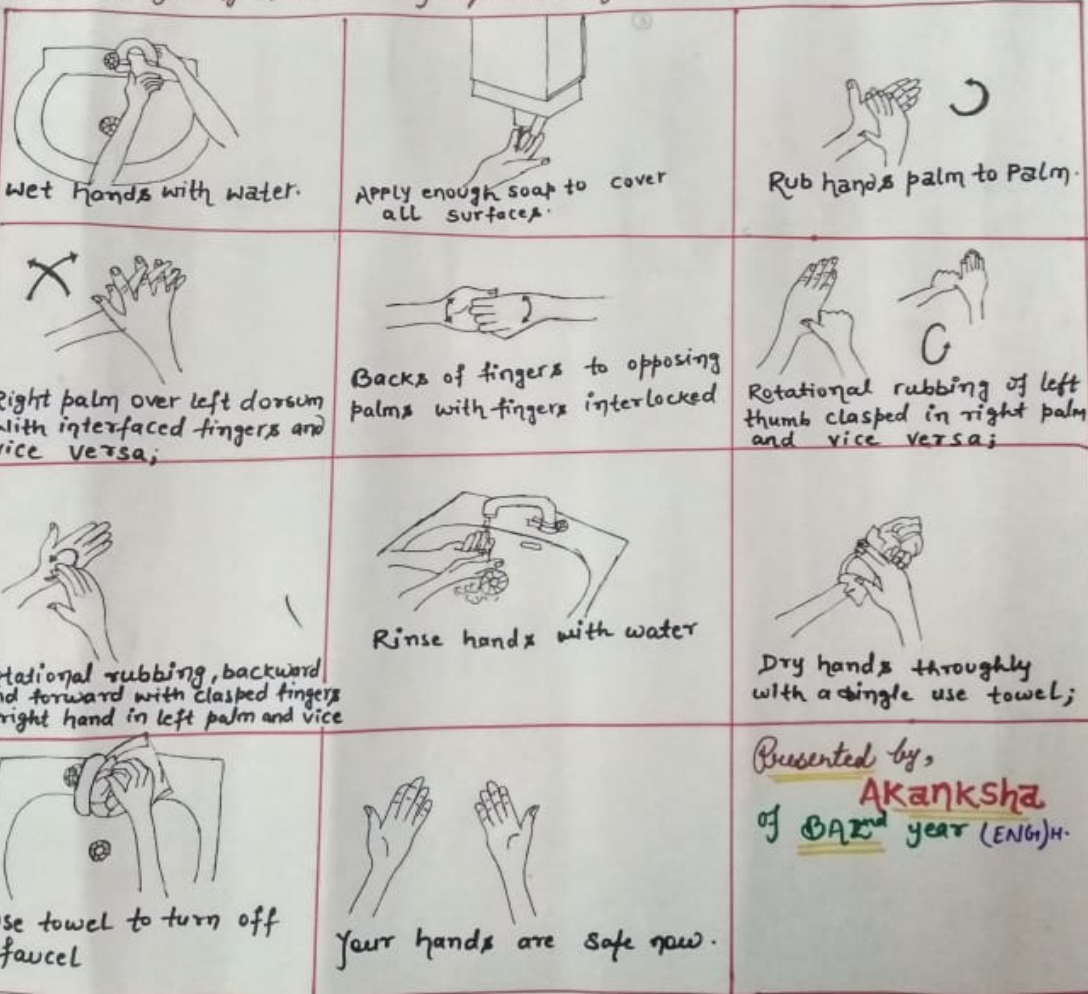 Wet hands with water.
Apply enough soap to cover
all surfaces.
Rub hands palm to Palm.
Right palm over left dorsum
With interfaced fingers and
vice versa;
Backs of fingers to opposing
palms with fingers interlocked
Rotational rubbing of left
thumb clasped in right palm
and vice versa;
tational rubbing, backword
nd forward with clasped fingers
right hand in left palm and vice
Rinse hands with water
Dry hands throughly
with a single use towel;
se towel to turn off
faucel
Your hands are safe now.
Presented by,
Akanksha
of BA IInd year (ENG)H.